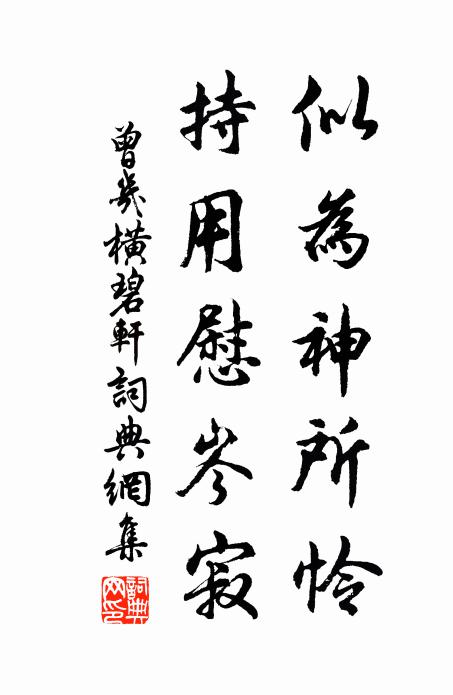 似為神所怜
持用慰岑寂
曾幾橫碧軒詞典網集
詞典網印